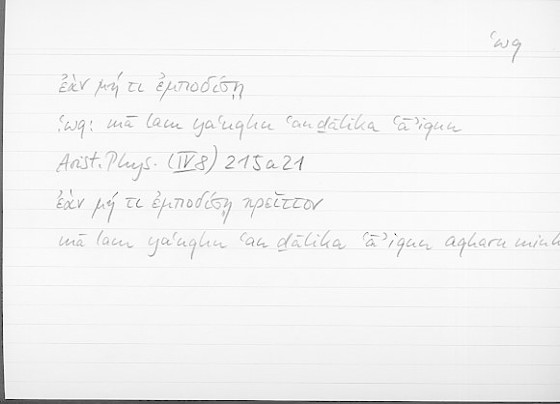 ʿwq
ἐὰν μή τι ἐμποδίσῃ
ʿwq: mā lam yaʿuqhu ʿan ḏālika ʿāʾiqun
Arist. Phys. (IV 8) 215a21
ἐὰν μή τι ἐμποδίσῃ κρεῖττον
mā lam yaʿuqhu ʿan ḏālika ʿāʾiqun aqharu minh